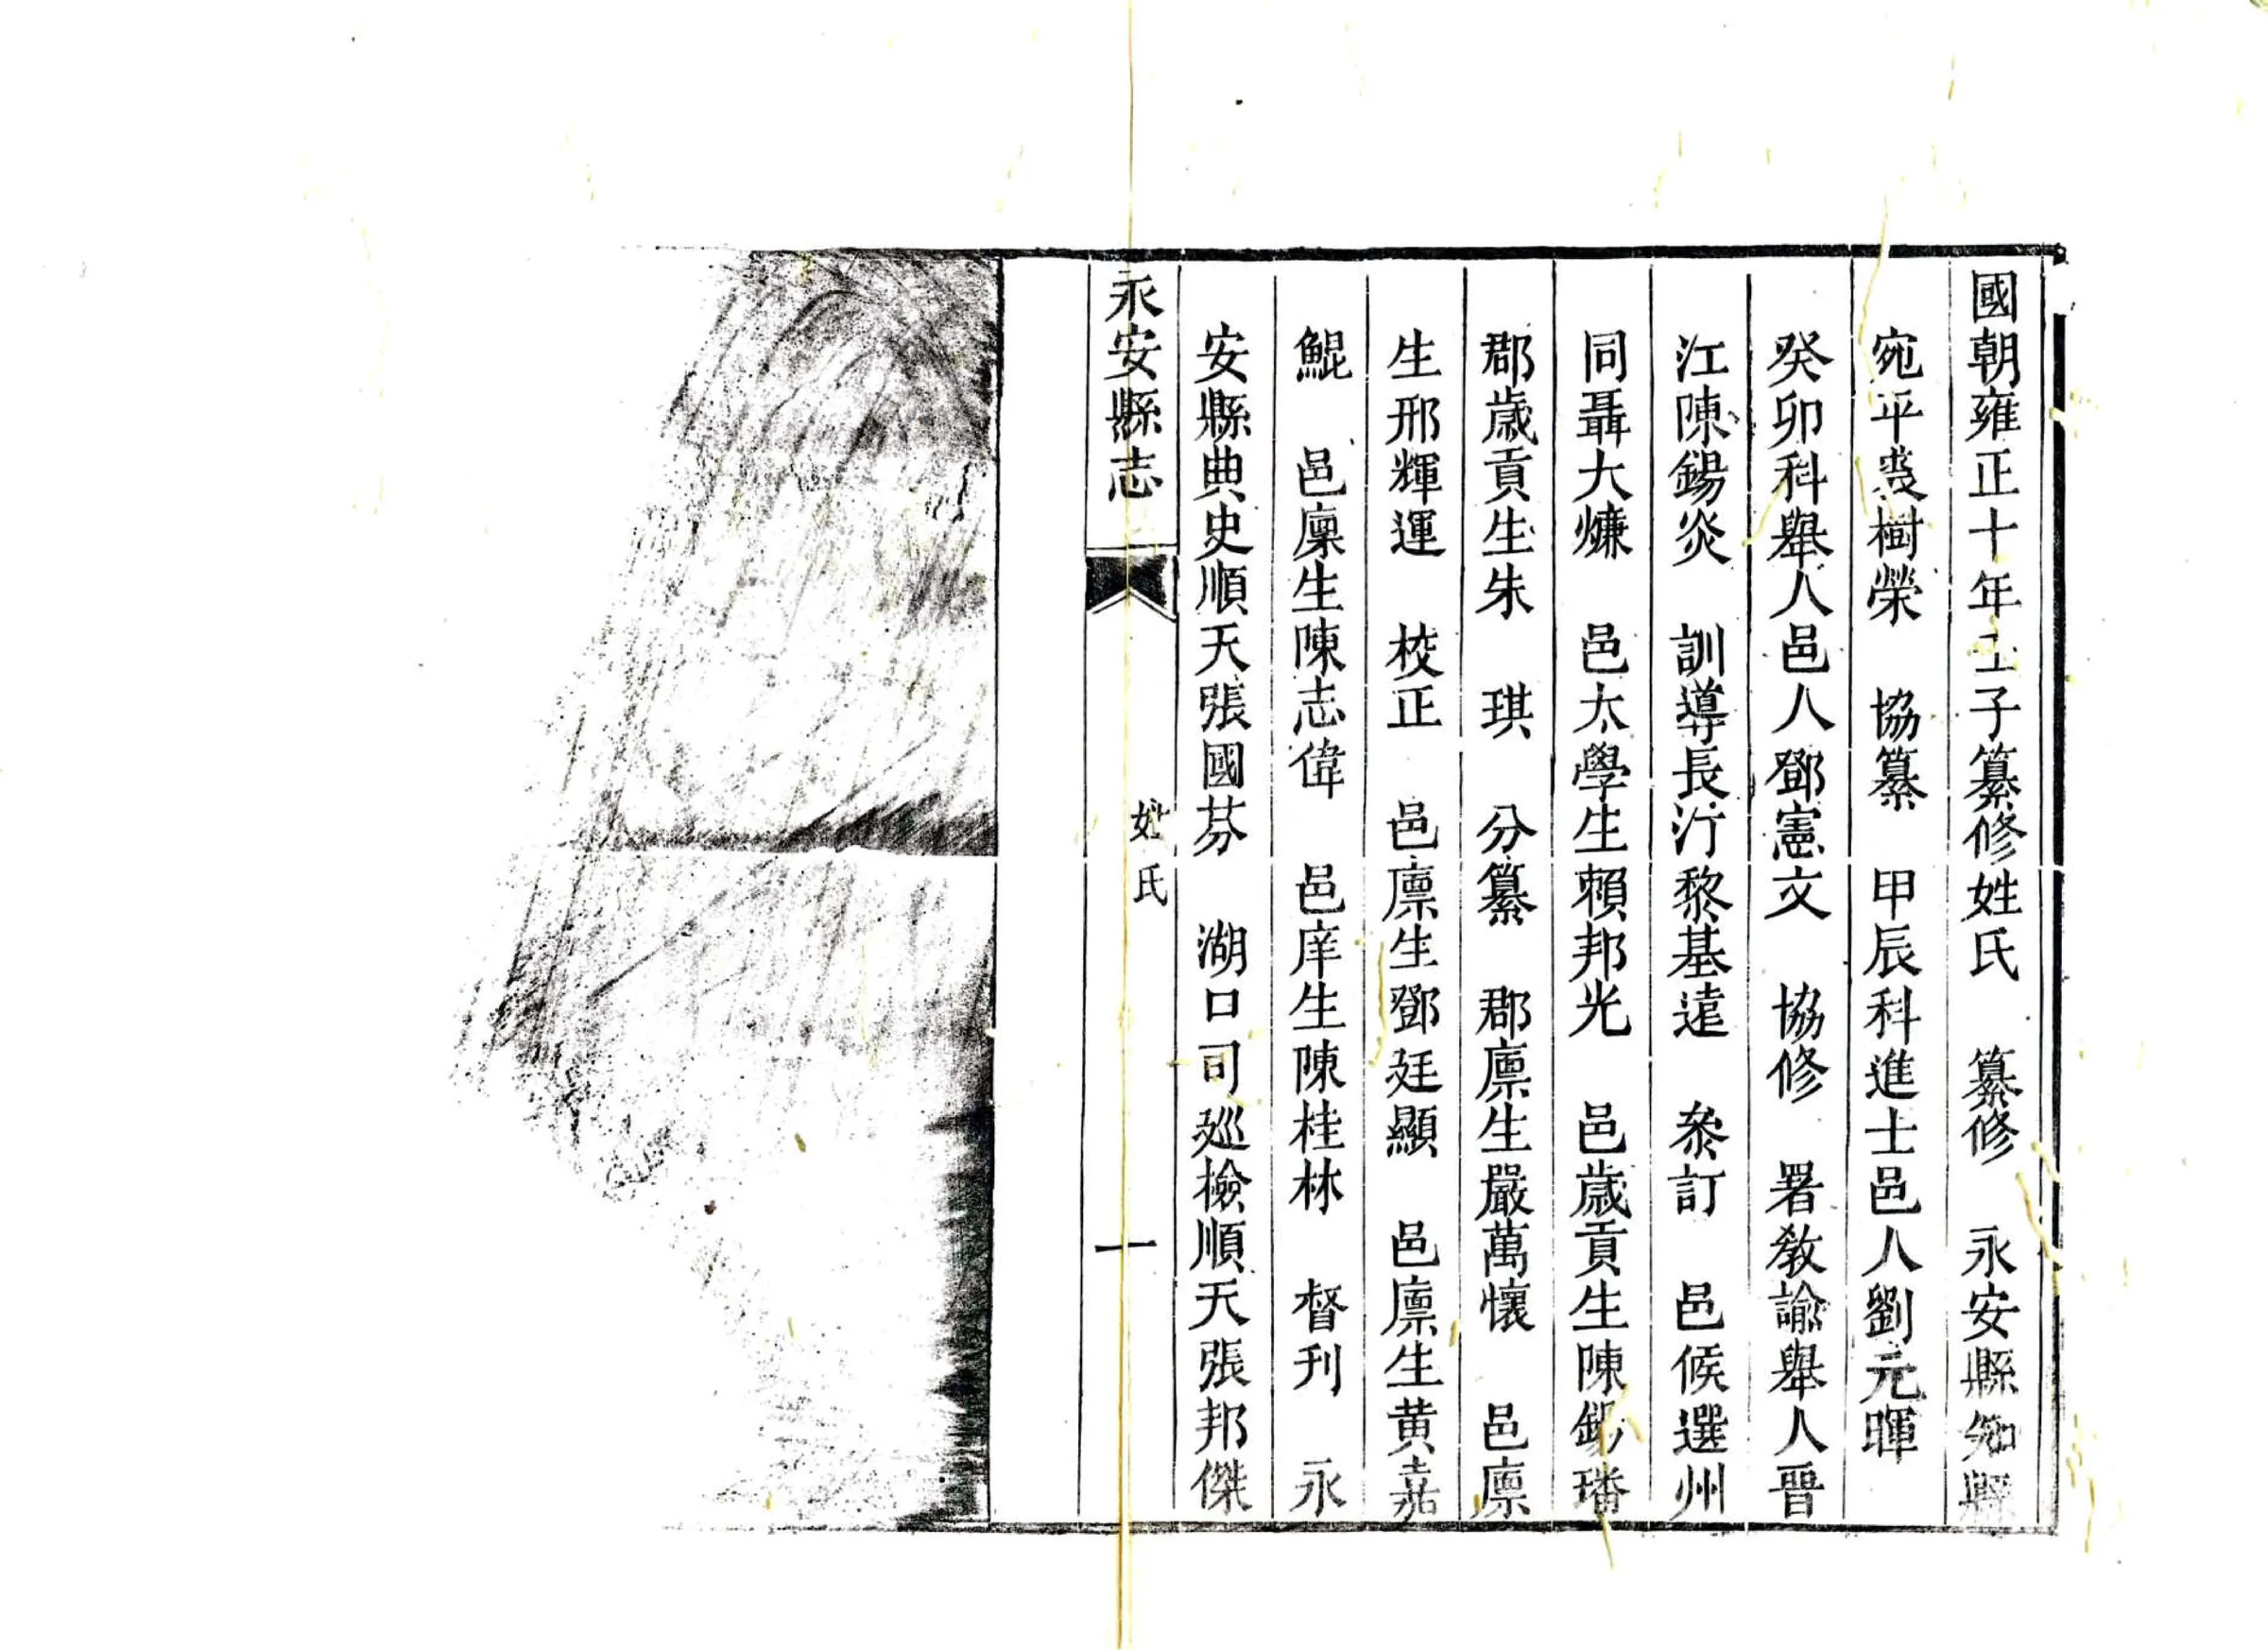 國朝雍正十年壬子纂修姓氏　纂修　永安縣知縣
宛平裘樹榮　協纂　甲辰科進士邑人劉元暉
癸卯科舉人邑人鄧憲文　協修　署教諭舉人晉
江陳鍚炎　訓導長汀黎基遠　叅訂　邑候選州
同聶大㷰　邑太學生賴邦光　邑歲貢生陳鍚璠
郡歲貢生朱　琪　分纂　郡廪生嚴萬懷　邑廪
生邢輝運　校正　邑廪生鄧廷顯　邑廪生黄嘉
鯤　邑廪生陳志偉　邑庠生陳桂林　督刋　永
安縣典史順天張國芬　湖口司廵檢順天張邦傑
永安縣志　姓氏　一